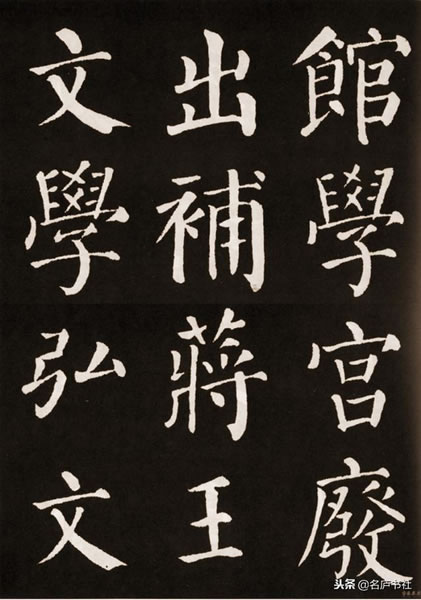 館學宫廢
出補蔣王
文學弘文
头条 @名庐书社